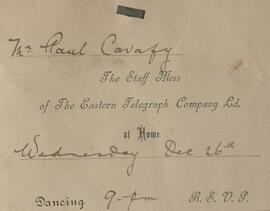 Mr Paul Cavafy
The Staff Mess
of The Eastern Telegraph Company Ld.
at Home
Wednesday Dec 26th
Dancing 9-pm R.S.V.P.